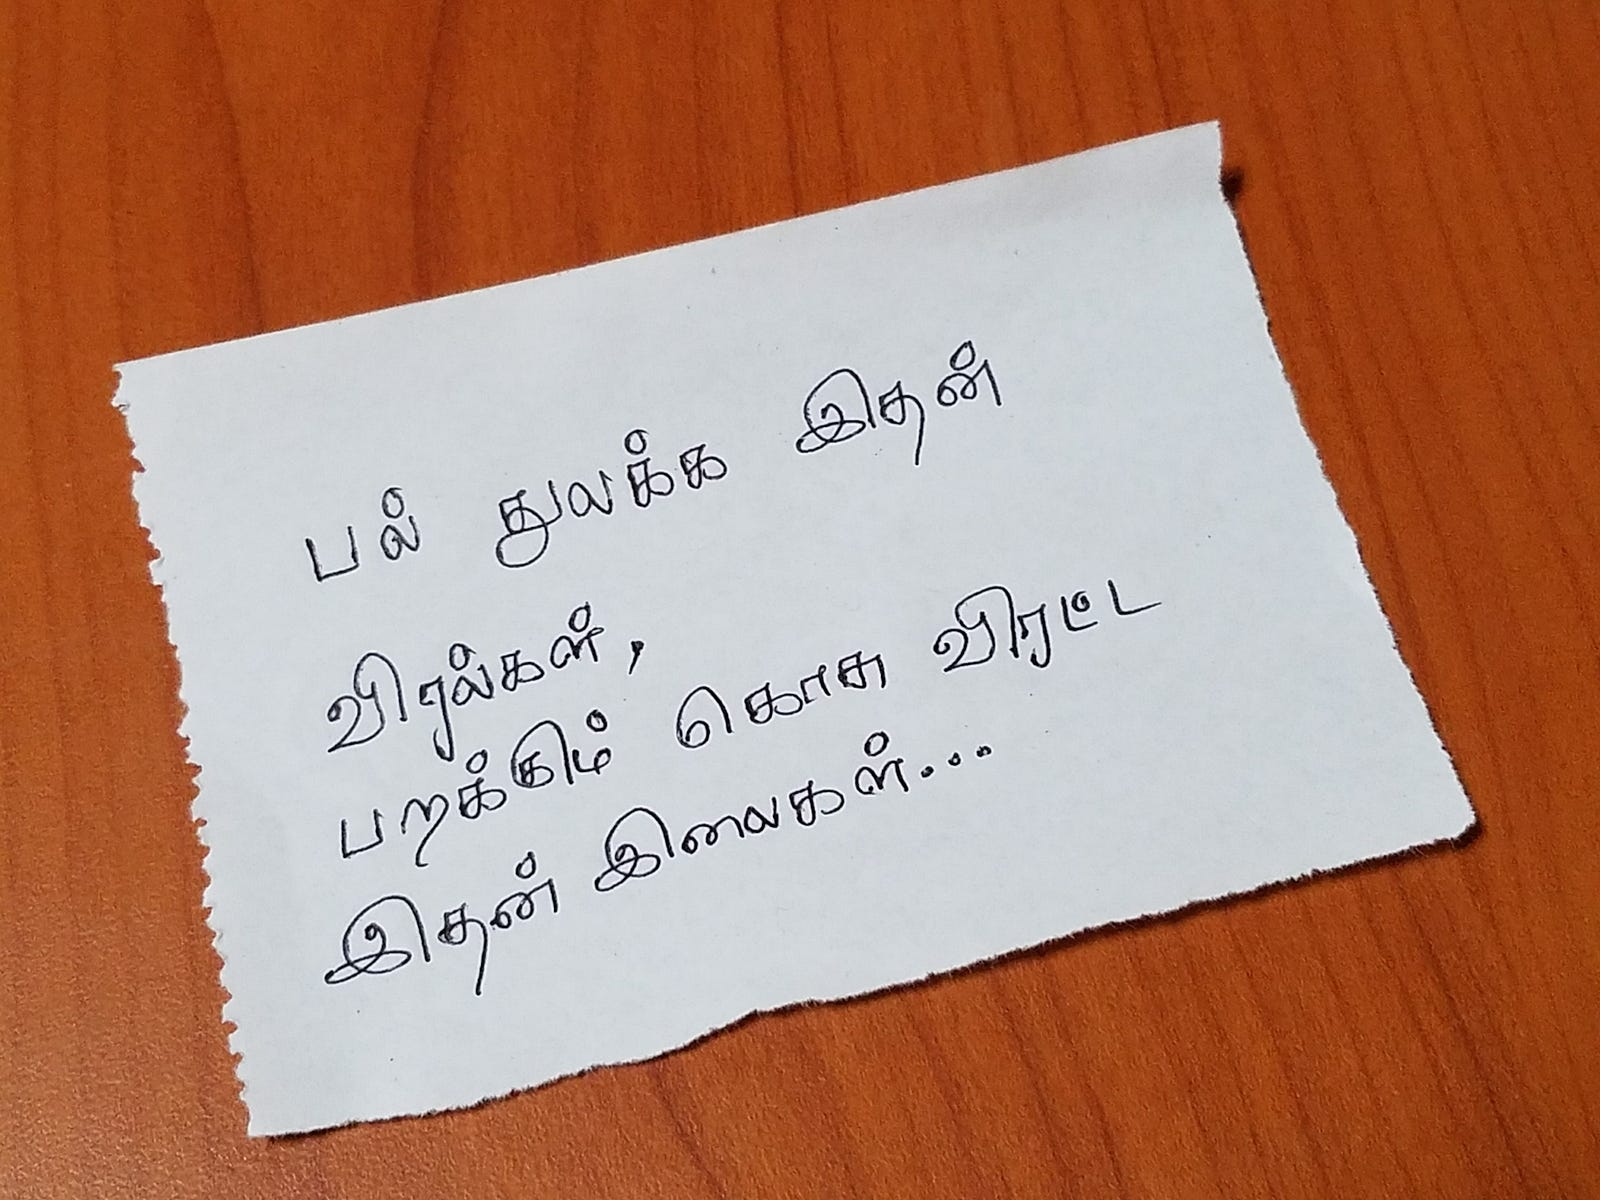 பல் துலக்க இதன்
விரல்கள்,
பறக்கும் கொசு விரட்ட
இதன் இலைகள்...